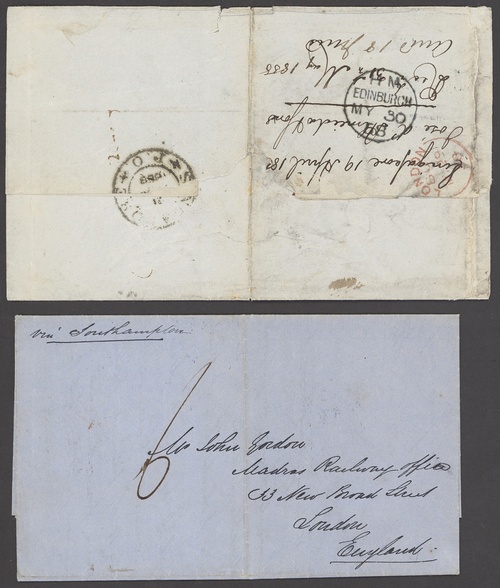 Singapore 19 April 185
Rec 30 May 1858
Ans 18 June
HM
EDINBURGH
MY 30
58
LONDON
via Southampton
6
Mr John Gordon
Madras Railway office
33 New Broad Street
London
England